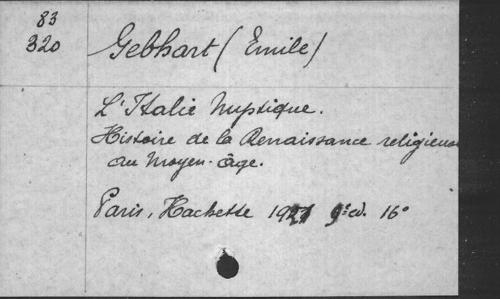 83
320
Gebhart (Emile)
L'Italie Mystique.
Histoire de la Renaissance religieuse
au Moyen-âge.
Paris, Hachette 1921 9e ed. 16°